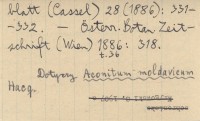 blatt (Cassel) 28 (1886): 331-
-332. — Österr. Botan. Zeit-
schrift (Wien) 1886: 318.
t. 36
Dotyczy Aconitum moldavicum
Hacq.